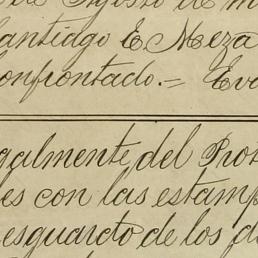 Agosto de m
antiago E. Meza
onfrontado.= Eva
galmente, del Prot
es con las estamp
esguardo de los d